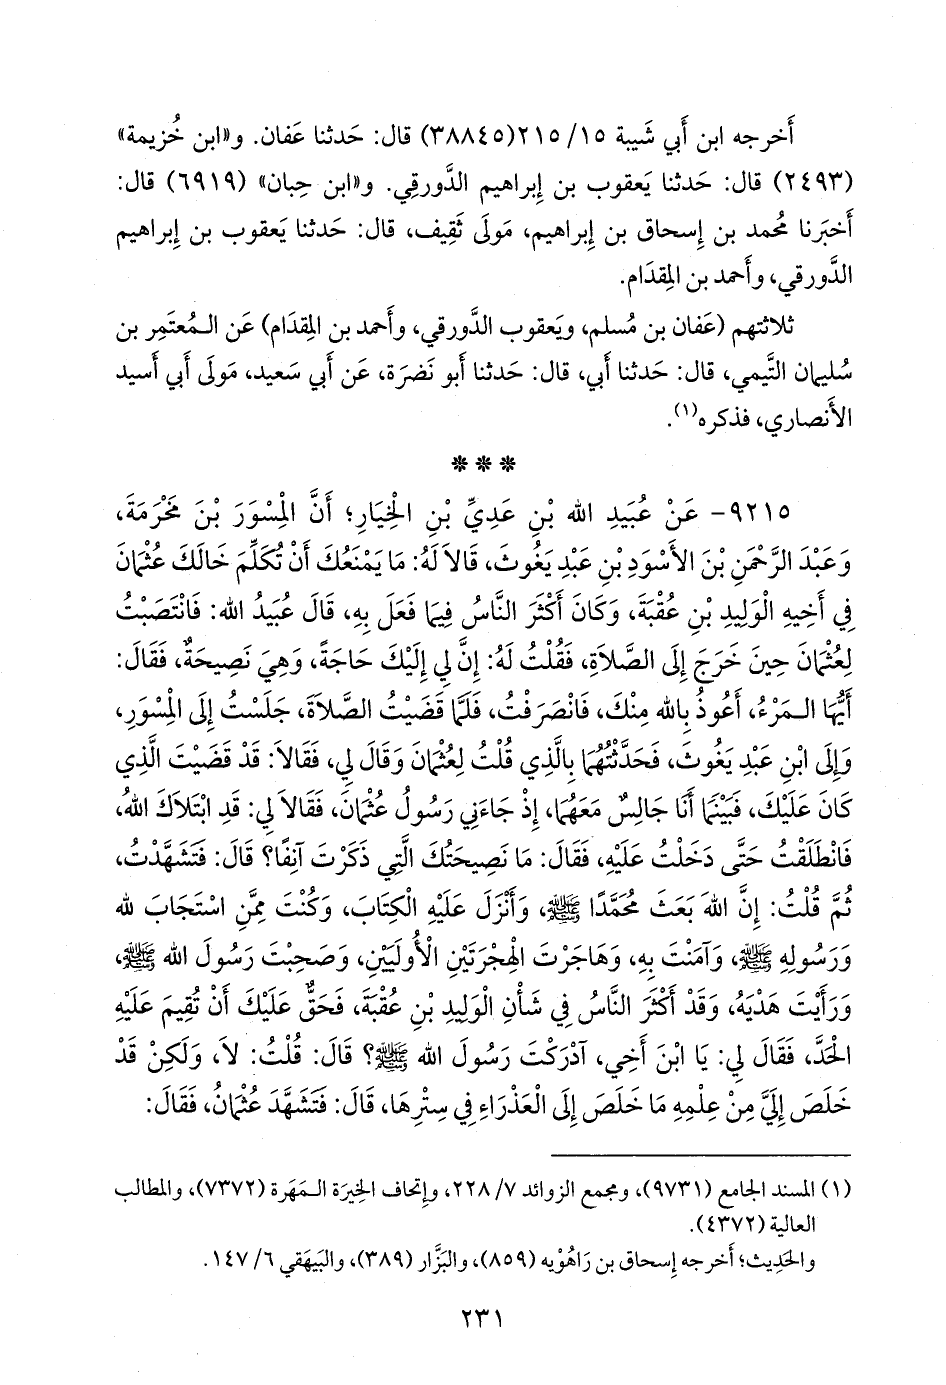 أَخرجه ابن أَبي شَيبة ١٥/ ٢١٥(٣٨٨٤٥) قال: حَدثنا عَفان. و«ابن خُزيمة»
(٢٤٩٣) قال: حَدثنا يَعقوب بن إِبراهيم الدَّورقِي. و«ابن حِبان» (٦٩١٩) قال:
أَخبَرنا مُحمد بن إِسحاق بن إِبراهيم، مَولَى ثَقِيف، قال: حَدثنا يَعقوب بن إِبراهيم
الدَّورقي، وأَحمد بن المِقدَام.
ثلاثتهم (عَفان بن مُسلم، ويَعقوب الدَّورقي، وأَحمد بن المِقدَام) عَن الـمُعتَمِر بن
سُليمان التَّيمي، قال: حَدثنا أَبي، قال: حَدثنا أَبو نَضرَة، عَن أَبي سَعيد، مَولَى أَبي أَسيد
الأَنصاري، فذكره(١).
***
٩٢١٥- عَنْ عُبَيدِ الله بْنِ عَدِيِّ بْنِ الْخِيَارِ؛ أَنَّ الْمِسْوَرَ بْنَ مَخْرَمَةَ،
وَعَبْدَ الرَّحْمَنِ بْنَ الأَسْوَدِ بْنِ عَبْدِ يَغُوثَ، قَالاَ لَهُ: مَا يَمْنَعُكَ أَنْ تُكَلِّمَ خَالَكَ عُثْمَانَ
فِي أَخِيهِ الْوَلِيدِ بْنِ عُقْبَةَ، وَكَانَ أَكْثَرَ النَّاسُ فِيمَا فَعَلَ بِهِ، قَالَ عُبَيدُ الله: فَانْتَصَبْتُ
لِعُثْمَانَ حِينَ خَرَجَ إِلَى الصَّلاَةِ، فَقُلْتُ لَهُ: إِنَّ لِي إِلَيْكَ حَاجَةً، وَهِيَ نَصِيحَةٌ، فَقَالَ:
أَيُّهَا الـمَرْءُ، أَعُوذُ بِالله مِنْكَ، فَانْصَرَفْتُ، فَلَمَّا قَضَيْتُ الصَّلاَةَ، جَلَسْتُ إِلَى الْمِسْوَرِ،
وَإِلَى ابْنِ عَبْدِ يَغُوثَ، فَحَدَّثْتُهُمَا بِالَّذِي قُلْتُ لِعُثْمَانَ وَقَالَ لِي، فَقَالاَ: قَدْ قَضَيْتَ الَّذِي
كَانَ عَلَيْكَ، فَبَيْنَمَا أَنَا جَالِسٌ مَعَهُمَا، إِذْ جَاءَنِي رَسُولُ عُثْمَانَ، فَقَالاَ لِي: قَدِ ابْتَلاَكَ اللهُ،
فَانْطَلَقْتُ حَتَّى دَخَلْتُ عَلَيْهِ، فَقَالَ: مَا نَصِيحَتُكَ الَّتِي ذَكَرْتَ آنِفًا؟ قَالَ: فَتَشَهَّدْتُ،
ثُمَّ قُلْتُ: إِنَّ اللهَ بَعَثَ مُحَمَّدًا ﷺ، وَأَنْزَلَ عَلَيْهِ الْكِتَابَ، وَكُنْتَ مِمَّنِ اسْتَجَابَ لله
وَرَسُولِهِ ﷺ، وَآمَنْتَ بِهِ، وَهَاجَرْتَ الْهِجْرَتَيْنِ الْأُولَيَيْنِ، وَصَحِبْتَ رَسُولَ الله ﷺ،
وَرَأَيْتَ هَدْيَهُ، وَقَدْ أَكْثَرَ النَّاسُ فِي شَأْنِ الْوَلِيدِ بْنِ عُقْبَةَ، فَحَقٌّ عَلَيْكَ أَنْ تُقِيمَ عَلَيْهِ
الْحَدَّ، فَقَالَ لِي: يَا ابْنَ أَخِي، آدْرَكْتَ رَسُولَ الله ﷺ؟ قَالَ: قُلْتُ: لاَ، وَلَكِنْ قَدْ
خَلَصَ إِلَيَّ مِنْ عِلْمِهِ مَا خَلَصَ إِلَى الْعَذْرَاءِ فِي سِتْرِهَا، قَالَ: فَتَشَهَّدَ عُثْمَانُ، فَقَالَ:
(١) المسند الجامع (٩٧٣١)، ومجمع الزوائد ٧/ ٢٢٨، وإِتحاف الخِيرَة الـمَهَرة (٧٣٧٢)، والمطالب
العالية (٤٣٧٢).
والحَدِيث؛ أَخرجه إِسحاق بن رَاهُوْيه (٨٥٩)، والبَزَّار (٣٨٩)، والبَيهَقي ٦/ ١٤٧.
٢٣١